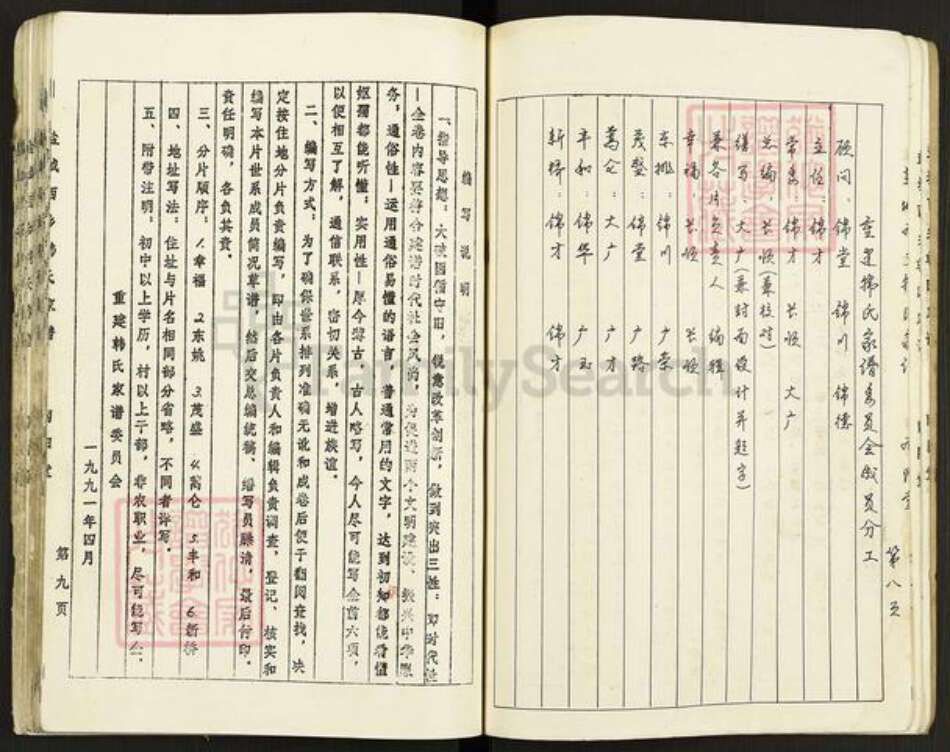 重建韩氏家谱委员会成员分工
顾问：锦堂 锦川 锦德
主任：锦才
常委：锦才 长顺 大广
总编：长顺（兼校对）
缮写：大广（兼封面设计并题字）
兼各片负责人 编辑
幸福：长顺 长顺
东姚：锦川 广荣
茂盛：锦堂 广路
蒿仑：大广 广才
丰和：锦华 广玉
新桥：锦才 锦才
第八页
编写说明
一、指导思想：大破因循守旧，锐意改革创新，做到突出三性：即时代性
—全卷内容要符合建谱时代社会风尚，为促进两个文明建设、振兴中华服
务，通俗性—运用通俗易懂的语言，普通常用的文字，达到初知都能看懂
妪孺都能听懂；实用性—厚今薄古，古人略写，今人尽可能写全前六项，
以便相互了解，通信联系，密切关系，增进族谊。
二、编写方式：为了确保世系排列准确无讹和成卷后便于翻阅查找，决
定按住地分片负责编写，即由各片负责人和编辑负责调查，登记、核实和
编写本片世系成员简况草谱，然后交总编统稿、缮写员誊清，最后付印。
责任明确，各负其责。
三、分片顺序：1.幸福 2.东姚 3.茂盛 4.蒿仑 5.丰和 6.新桥
四、地址写法：住址与片名相同部分省略，不同者详写。
五、附带注明：初中以上学历，村以上干部，非农职业，尽可能写全。
重建韩氏家谱委员会
一九九一年四月
第九页
FamilySearch